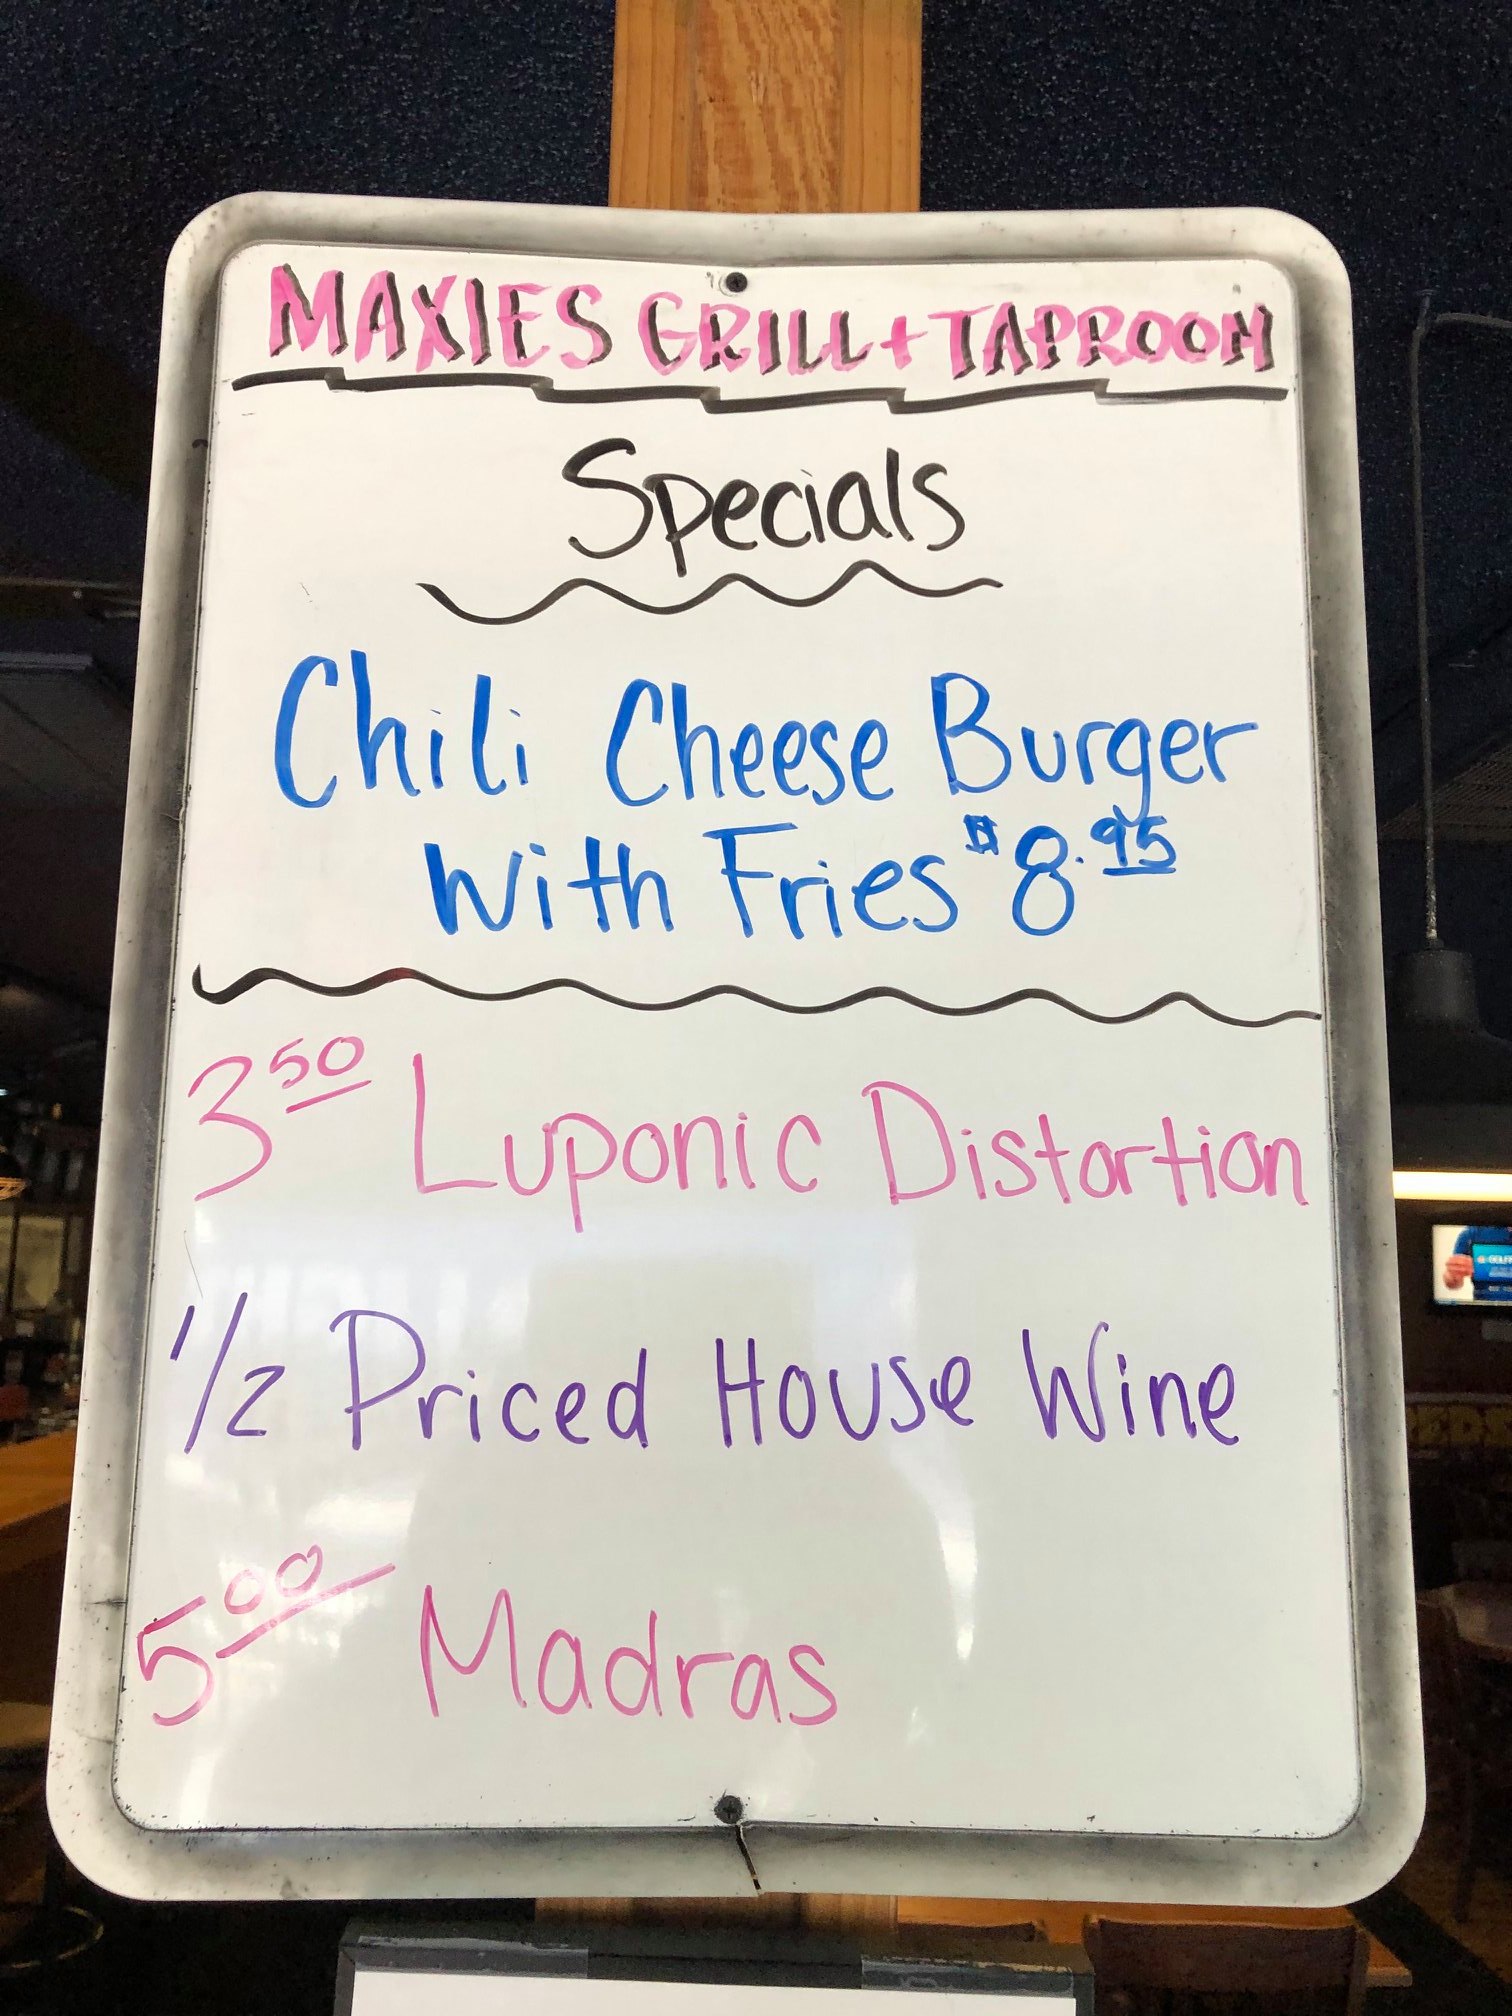 MAXIES GRILL + TAPROOM
Specials
Chili Cheese Burger
With Fries $8.95
3.50 Luponic Distortion
1/2 Priced House Wine
5.00 Madras